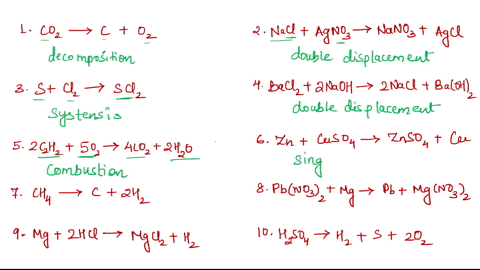 1. CO₂ → C + O₂
decomposition
2. NaCl + AgNO₃ → NaNO₃ + AgCl
double displacement
3. S + Cl₂ → SCl₂
Systensis
4. BaCl₂ + 2NaOH → 2NaCl + Ba(OH)₂
double displacement
5. 2C₂H₂ + 5O₂ → 4CO₂ + 2H₂O
Combustion
6. Zn + CuSO₄ → ZnSO₄ + Cu
sing
7. CH₄ → C + 2H₂
8. Pb(NO₃)₂ + Mg → Pb + Mg(NO₃)₂
9. Mg + 2HCl → MgCl₂ + H₂
10. H₂SO₄ → H₂ + S + 2O₂